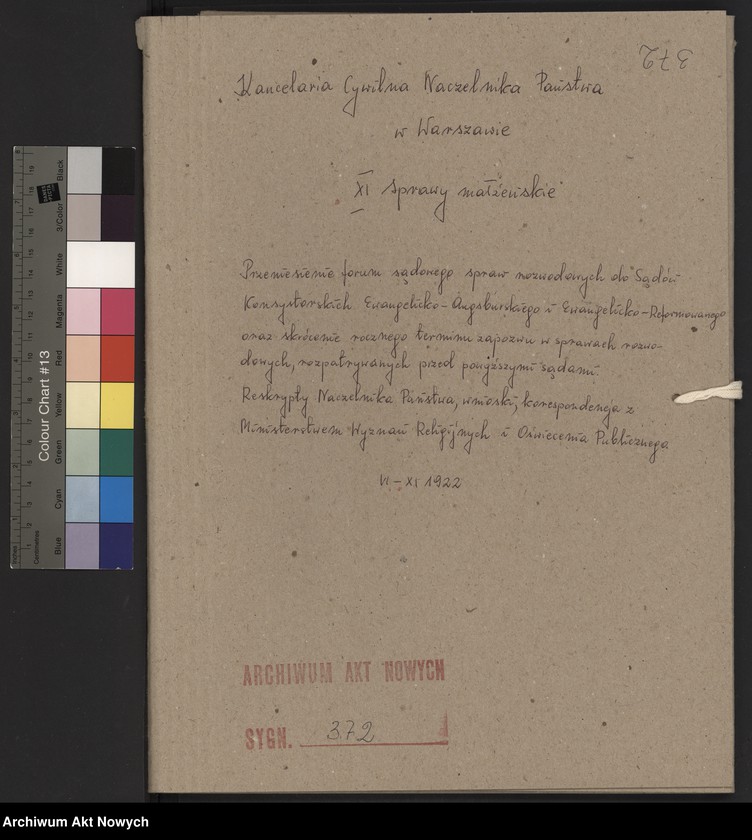 372
Kancelaria Cywilna Naczelnika Państwa
w Warszawie
XI sprawy małżeńskie
Przeniesienie forum sądowego spraw rozwodowych do Sądów
Konsystorskich Ewangelicko-Augsburskiego i Ewangelicko-Reformowanego
oraz skrócenie rocznego terminu zapozwu w sprawach rozwo-
dowych, rozpatrywanych przed powyższymi sądami.
Reskrypty Naczelnika Państwa, wnioski, korespondencja z
Ministerstwem Wyznań Religijnych i Oświecenia Publicznego
VI - XI 1922
ARCHIWUM AKT NOWYCH
SYGN. 372
Colour Chart #13
Blue Cyan Green Yellow Red Magenta White 3/Color Black
Inches
Centimetres
Archiwum Akt Nowych
Archiwum Akt Nowych